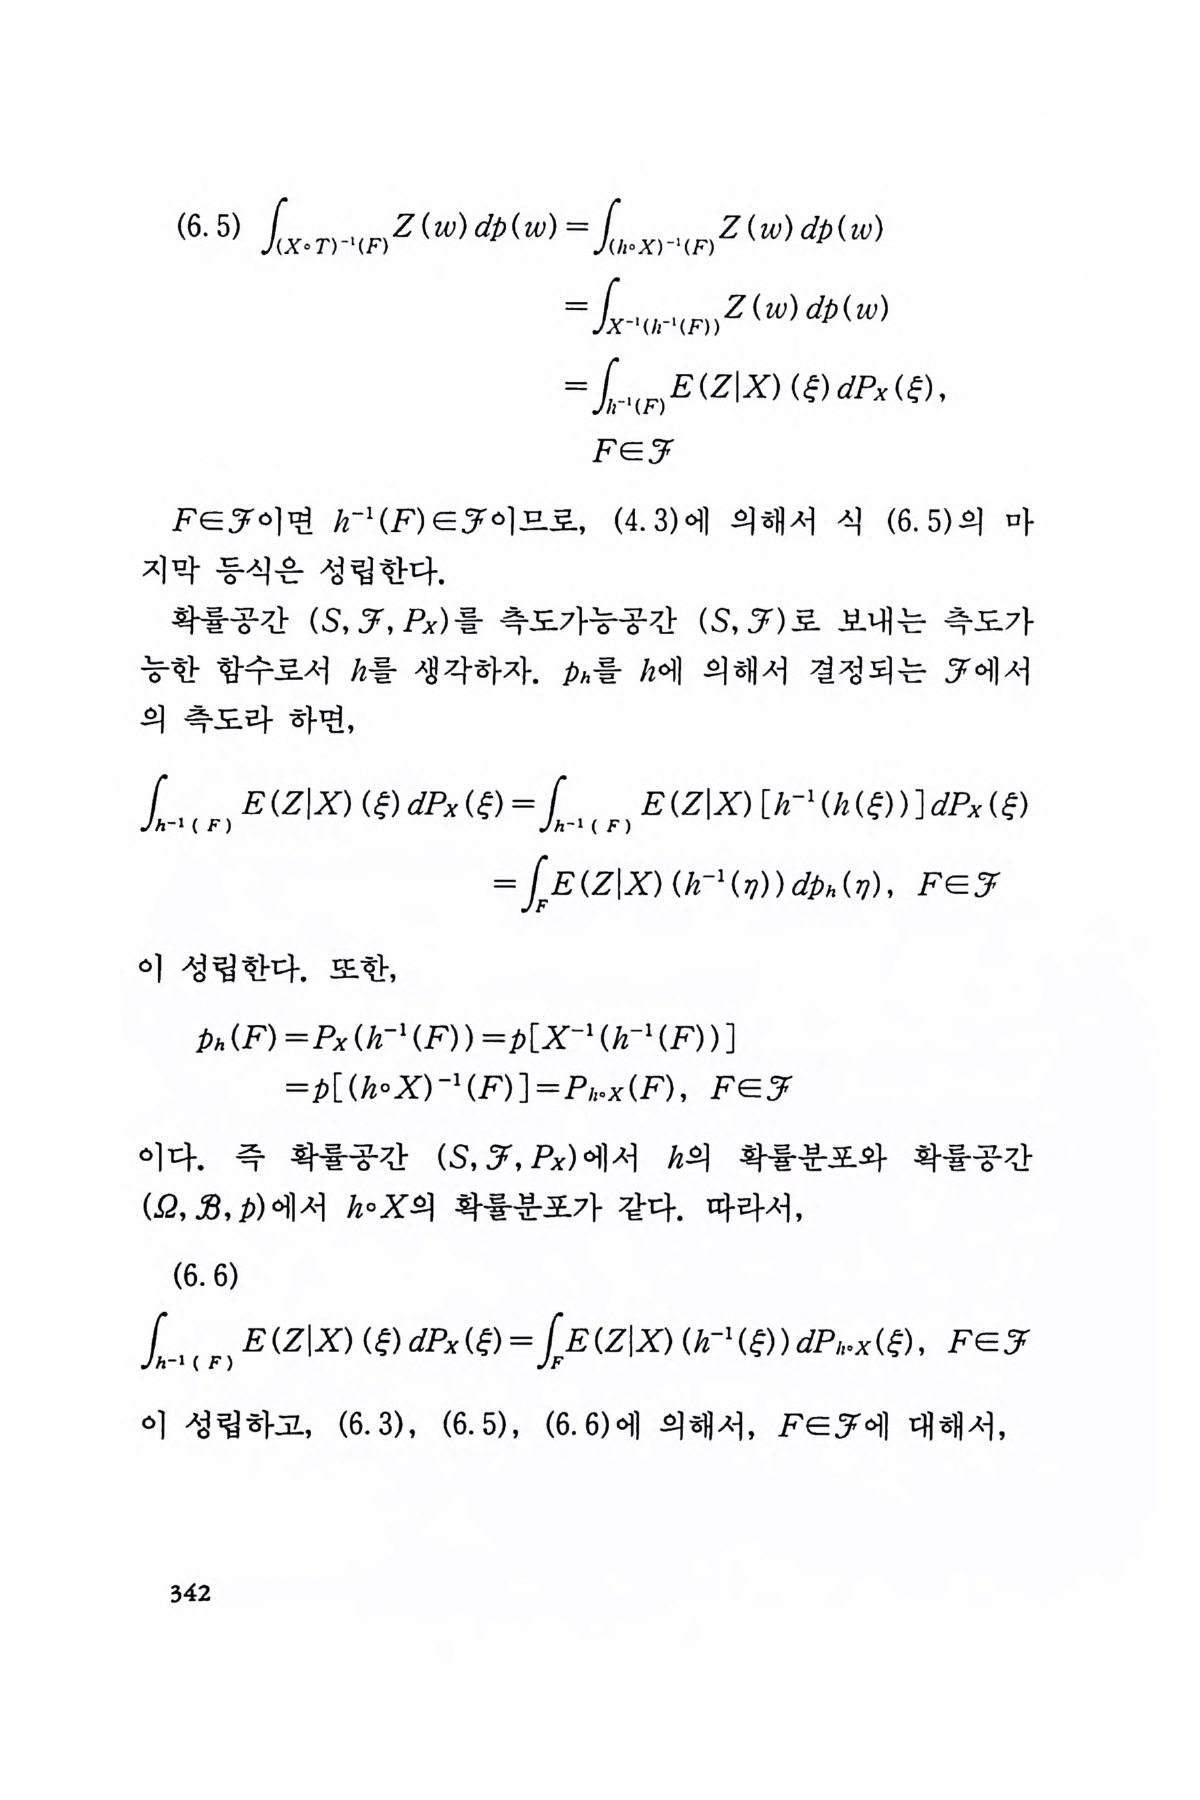 (6.5) ∫_{(X∘T)⁻¹(F)} Z(w)dp(w)=∫_{(h∘X)⁻¹(F)} Z(w)dp(w)
=∫_{X⁻¹(h⁻¹(F))} Z(w)dp(w)
=∫_{h⁻¹(F)} E(Z|X)(ξ)dP_X(ξ),
F∈ℱ
F∈ℱ이면 h⁻¹(F)∈ℱ이므로, (4.3)에 의해서 식 (6.5)의 마
지막 등식은 성립한다.
확률공간 (S, ℱ, P_X)를 측도가능공간 (S, ℱ)로 보내는 측도가
능한 함수로서 h를 생각하자. p_h를 h에 의해서 결정되는 ℱ에서
의 측도라 하면,
∫_{h⁻¹(F)} E(Z|X)(ξ)dP_X(ξ)=∫_{h⁻¹(F)} E(Z|X)[h⁻¹(h(ξ))]dP_X(ξ)
=∫_F E(Z|X)(h⁻¹(η))dp_h(η), F∈ℱ
이 성립한다. 또한,
p_h(F)=P_X(h⁻¹(F))=p[X⁻¹(h⁻¹(F))]
=p[(h∘X)⁻¹(F)]=P_{h∘X}(F), F∈ℱ
이다. 즉 확률공간 (S, ℱ, P_X)에서 h의 확률분포와 확률공간
(Ω, ℬ, p)에서 h∘X의 확률분포가 같다. 따라서,
(6.6)
∫_{h⁻¹(F)} E(Z|X)(ξ)dP_X(ξ)=∫_F E(Z|X)(h⁻¹(ξ))dP_{h∘X}(ξ), F∈ℱ
이 성립하고, (6.3), (6.5), (6.6)에 의해서, F∈ℱ에 대해서,
342